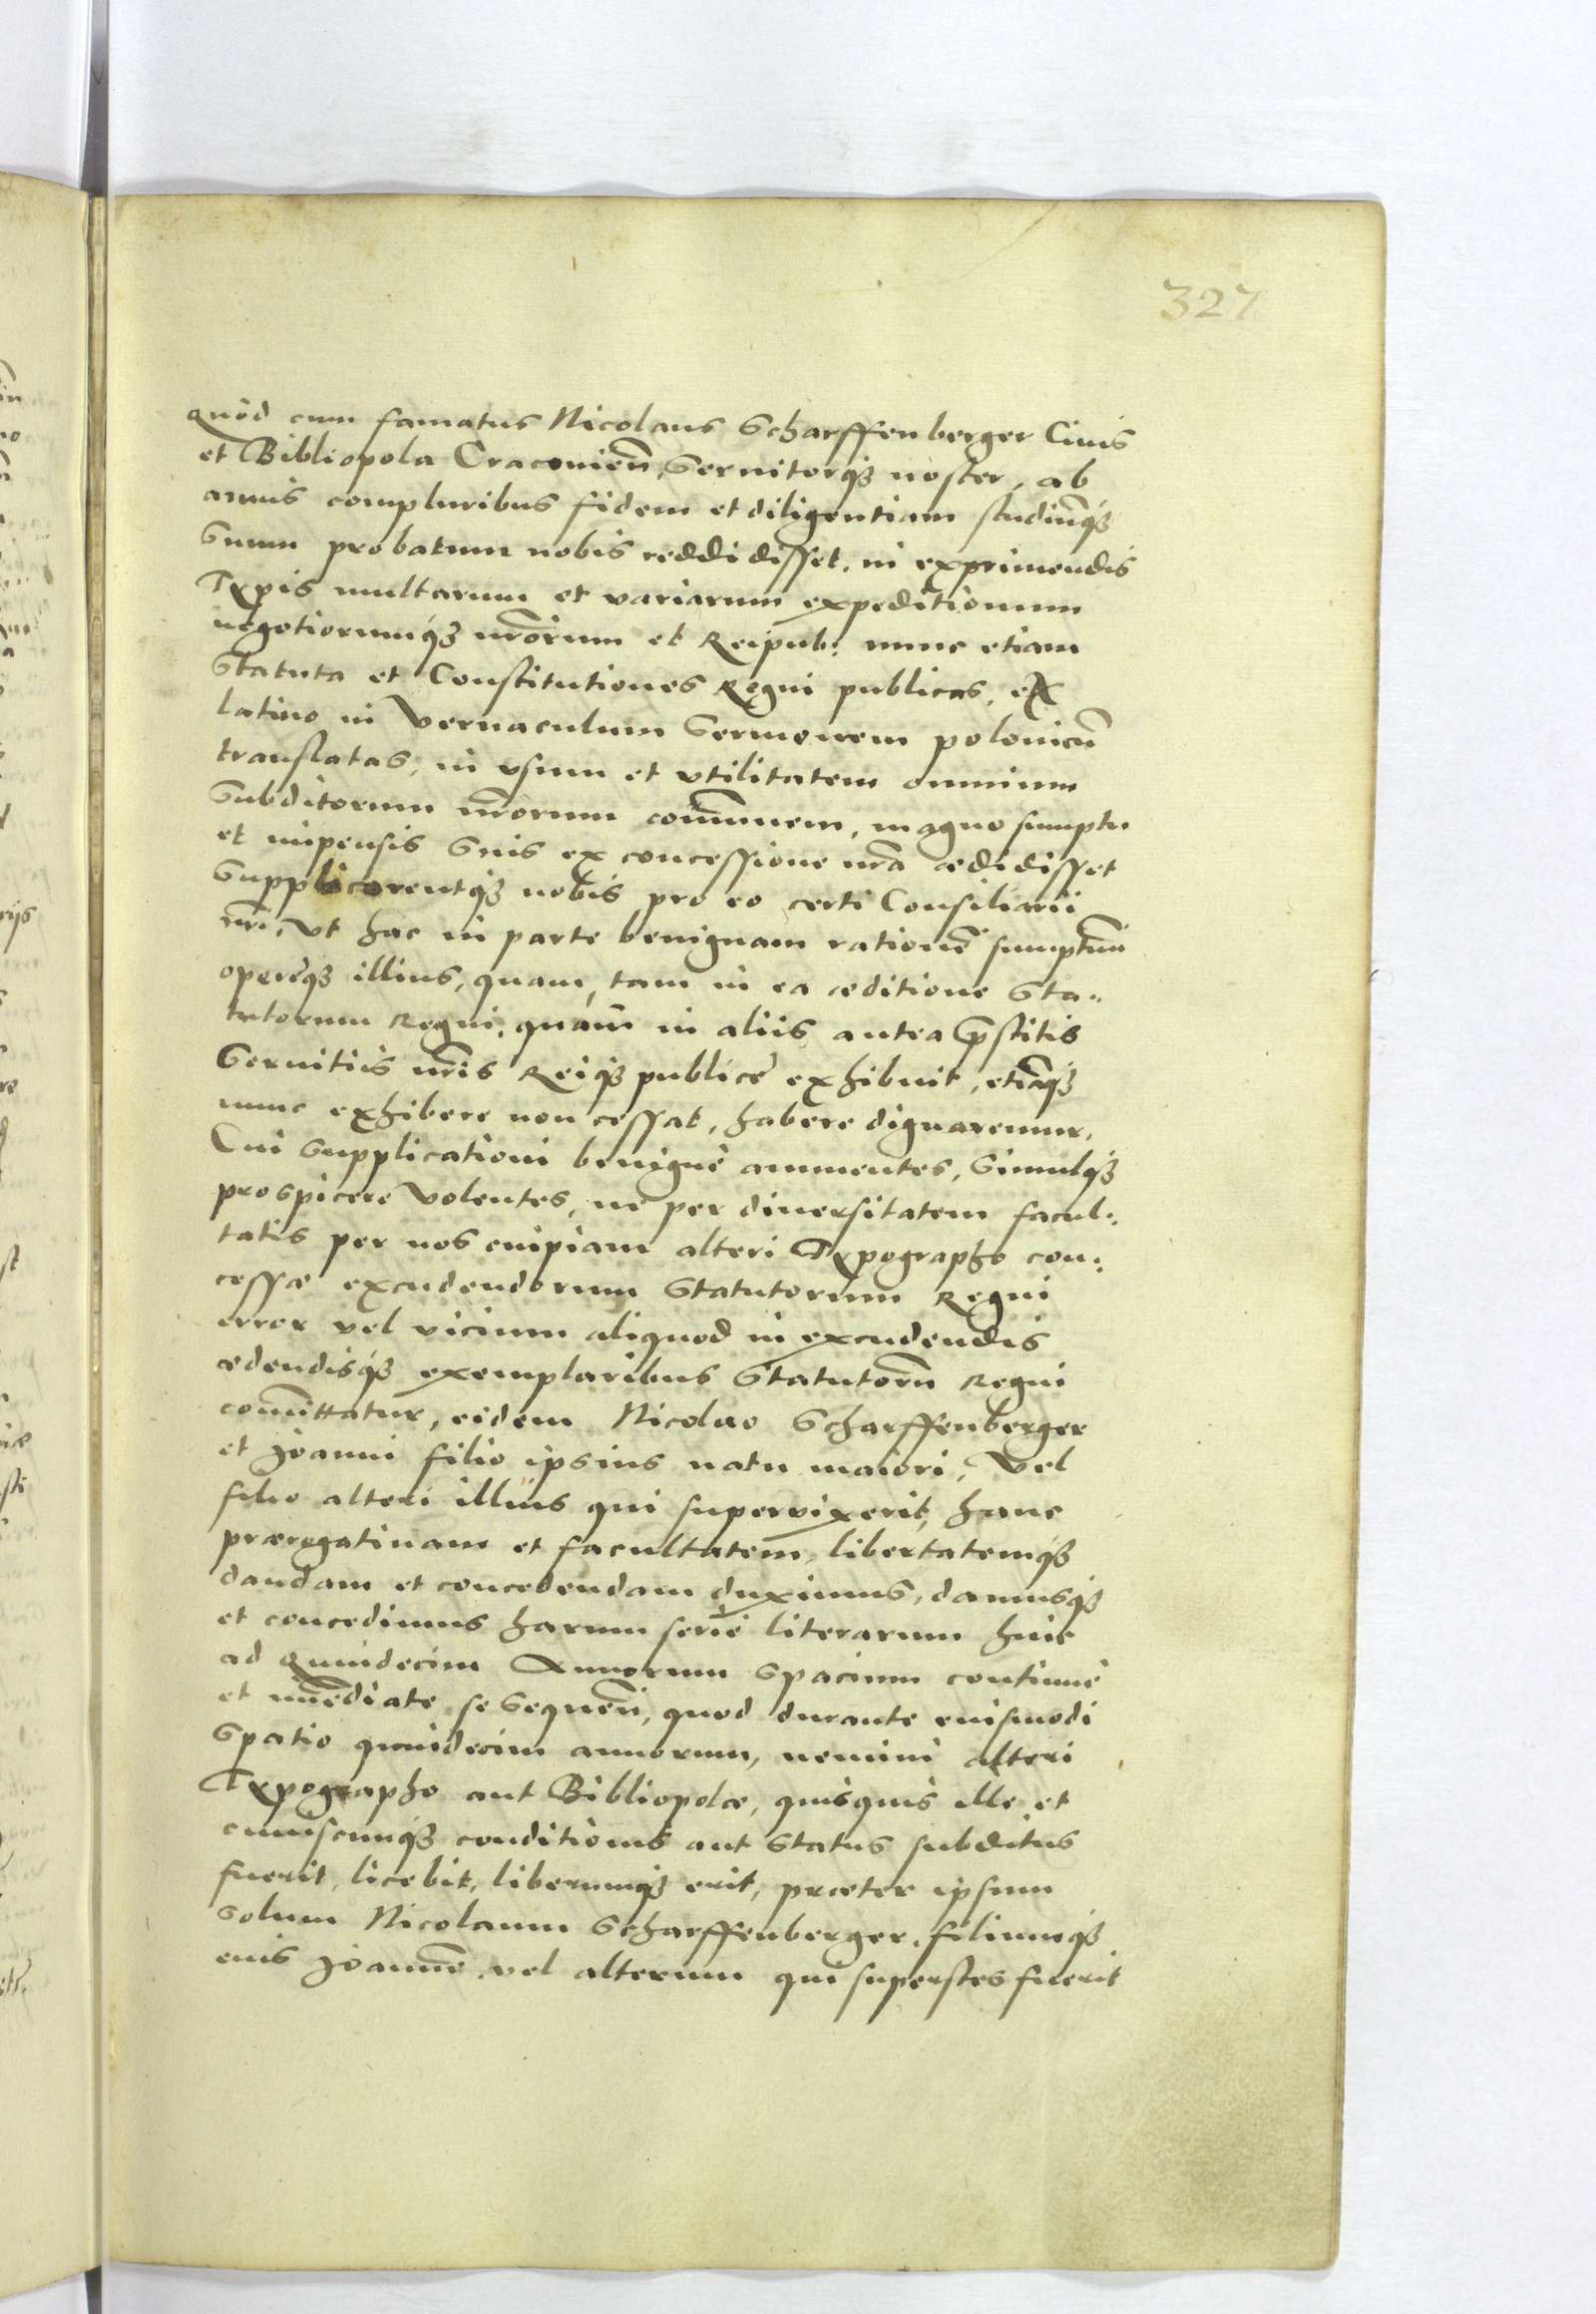 327
quod cum famatus Nicolaus Scharffenberger Ciuis
et Bibliopola Cracouien̄, Seruitorq̃ noster, ab
annis compluribus fidem et diligentiam studiūq̃
Suum probatum nobis reddidisset, in exprimendis
Typis multarum et variarum expeditionum
negotiorumq̃ nr̄orum et Reipub: nunc etiam
Statuta et Constitutiones Regni publicas, ex
latino in Vernaculum Sermonem polonicū
translatas, in vsum et vtilitatem omnium
Subditorum nr̄orum com̄unem, magno sumptu
et impensis Suis ex concessione nr̄a ædidisset
Supplicarentq̃ nobis pro eo certi Consiliarii
nr̄i, Vt hac in parte benignam rationē sumptuū
operęq̃ illius, quam, tam in ea æditione Sta-
tutorum Regni, quàm in aliis antea p̄stitis
Seruitiis nr̄is Reiq̃ publicę exhibuit, etiāq̃
nunc exhibere non cessat, habere dignaremur,
Cui Supplicationi benignè annuentes, Simulq̃
prospicere Volentes, ne per diuersitatem facul-
tatis per nos cuipiam alteri Typographo con-
cessæ excudendorum Statutorum Regni
error vel vicium aliquod in excudendis
ædendisq̃ exemplaribus Statutorū Regni
com̄ittatur, eidem Nicolao Scharffenberger
et Joanni filio ipsius natu maiori, Vel
filio alteri illius qui supervixerit, hanc
prærogatiuam et facultatem, libertatemq̃
dandam et concedendam duximus, damusq̃
et concedimus harum serie literarum hinc
ad Quindecim Annorum Spacium continuè
et im̄ediate se Sequen̄, quod durante eiusmodi
Spatio quindecim annorum, nemini alteri
Typographo aut Bibliopolæ, quisquis ille et
cuiuscunq̃ conditionis aut Status subditus
fuerit, licebit, liberumq̃ erit, præter ipsum
Solum Nicolaum Scharffenberger, filiumq̃
eius Joannē, vel alterum qui superstes fuerit